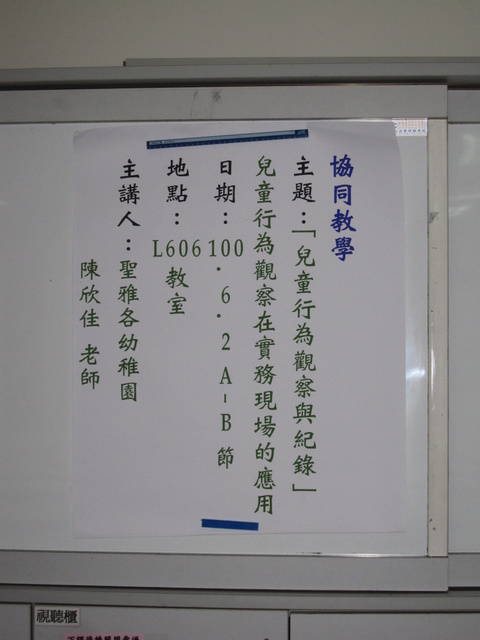 協同教學
主題：「兒童行為觀察與紀錄」
兒童行為觀察在實務現場的應用
日期：100．6．2 A-B 節
地點：L606 教室
主講人：聖雅各幼稚園
陳欣佳 老師
視聽櫃